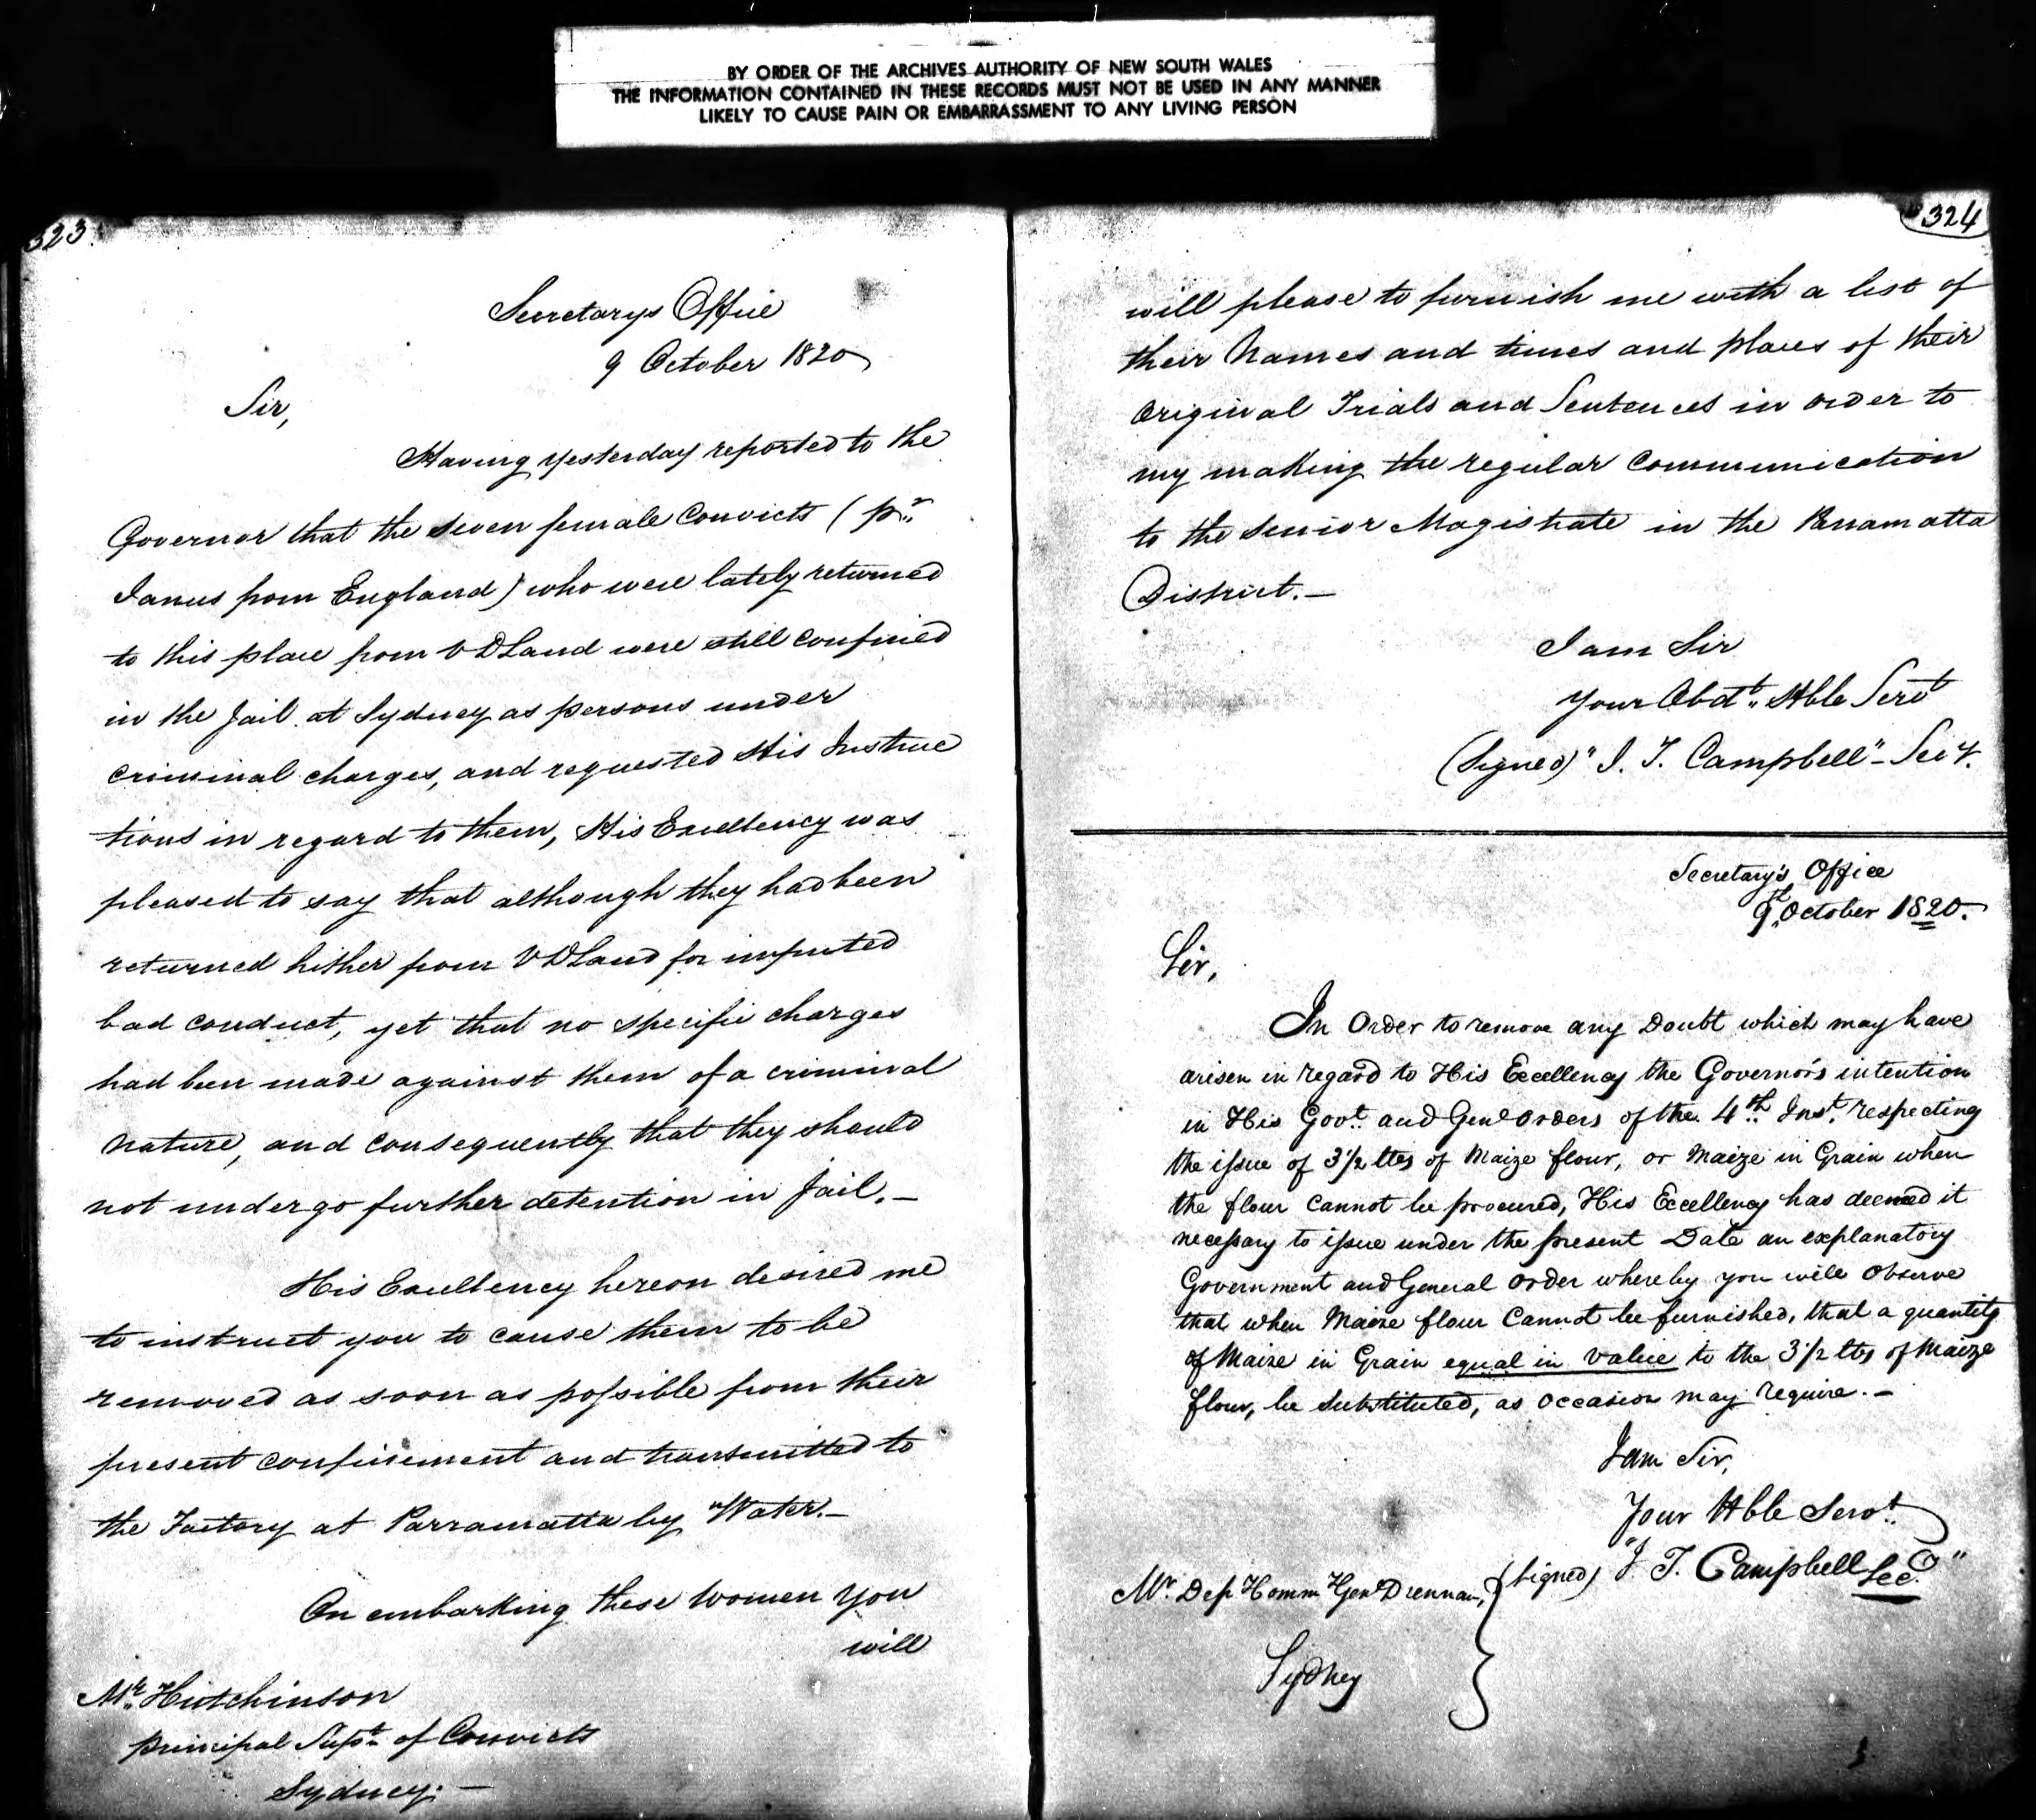 BY ORDER OF THE ARCHIVES AUTHORITY OF NEW SOUTH WALES
THE INFORMATION CONTAINED IN THESE RECORDS MUST NOT BE USED IN ANY MANNER
LIKELY TO CAUSE PAIN OR EMBARRASSMENT TO ANY LIVING PERSON
323
Secretarys Office
9 October 1820
Sir,
Having yesterday reported to the
Governor that the seven female Convicts (pr.
Janus from England) who were lately returned
to this place from V D Land were still confined
in the Jail at Sydney as persons under
criminal charges, and requested His Instruc
tions in regard to them, His Excellency was
pleased to say that although they had been
returned hither from V D Land for imputed
bad conduct, yet that no specific charges
had been made against them of a criminal
nature, and consequently that they should
not undergo further detention in Jail.—
His Excellency hereon desired me
to instruct you to cause them to be
removed as soon as possible from their
present confinement and transmitted to
the Factory at Parramatta by Water.—
On embarking these Women You
will
Mr. Hutchinson
principal Supt. of Convicts
Sydney.—
324
will please to furnish me with a list of
their Names and times and places of their
Original Trials and Sentences in order to
my making the regular Communication
to the Senior Magistrate in the Parramatta
District.—
I am Sir
Your Obdt. Hble Servt
(Signed) "J. T. Campbell" - Secy.
Secretary's Office
9th October 1820.
Sir,
In Order to remove any Doubt which may have
arisen in regard to His Excellency the Governor's intention
in His Govt. and Genl Orders of the 4th. Inst. respecting
the issue of 3 1/2 lbs of Maize flour, or Maize in Grain when
the flour Cannot be procured, His Excellency has deemed it
necessary to issue under the present Date an explanatory
Government and General Order whereby you will Observe
that when Maize flour Cannot be furnished, that a quantity
of Maize in Grain equal in value to the 3 1/2 lbs of Maize
flour, be substituted, as Occasion may require.—
I am Sir,
Your Hble Servt.
(Signed) "J. T. Campbell Secy."
Mr. Dep Comm Genl Drennan,
Sydney